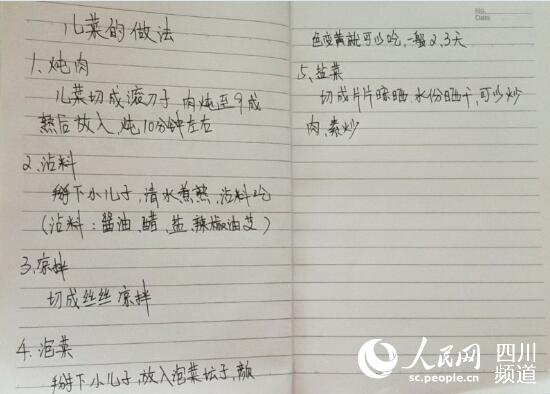 儿菜的做法
1、炖肉
儿菜切成滚刀子，肉炖至9成
熟后放入，炖10分钟左右
2、沾料
掰下小儿子，清水煮熟，沾料吃
（沾料：酱油、醋、盐、辣椒油艾）
3、凉拌
切成丝丝凉拌
4、泡菜
掰下小儿子，放入泡菜坛子，颜
No.
Date
色变黄就可以吃，一般2、3天
5、盐菜
切成片片晾晒，水份晒干，可以炒
肉、素炒
人民网 四川频道
sc.people.cn